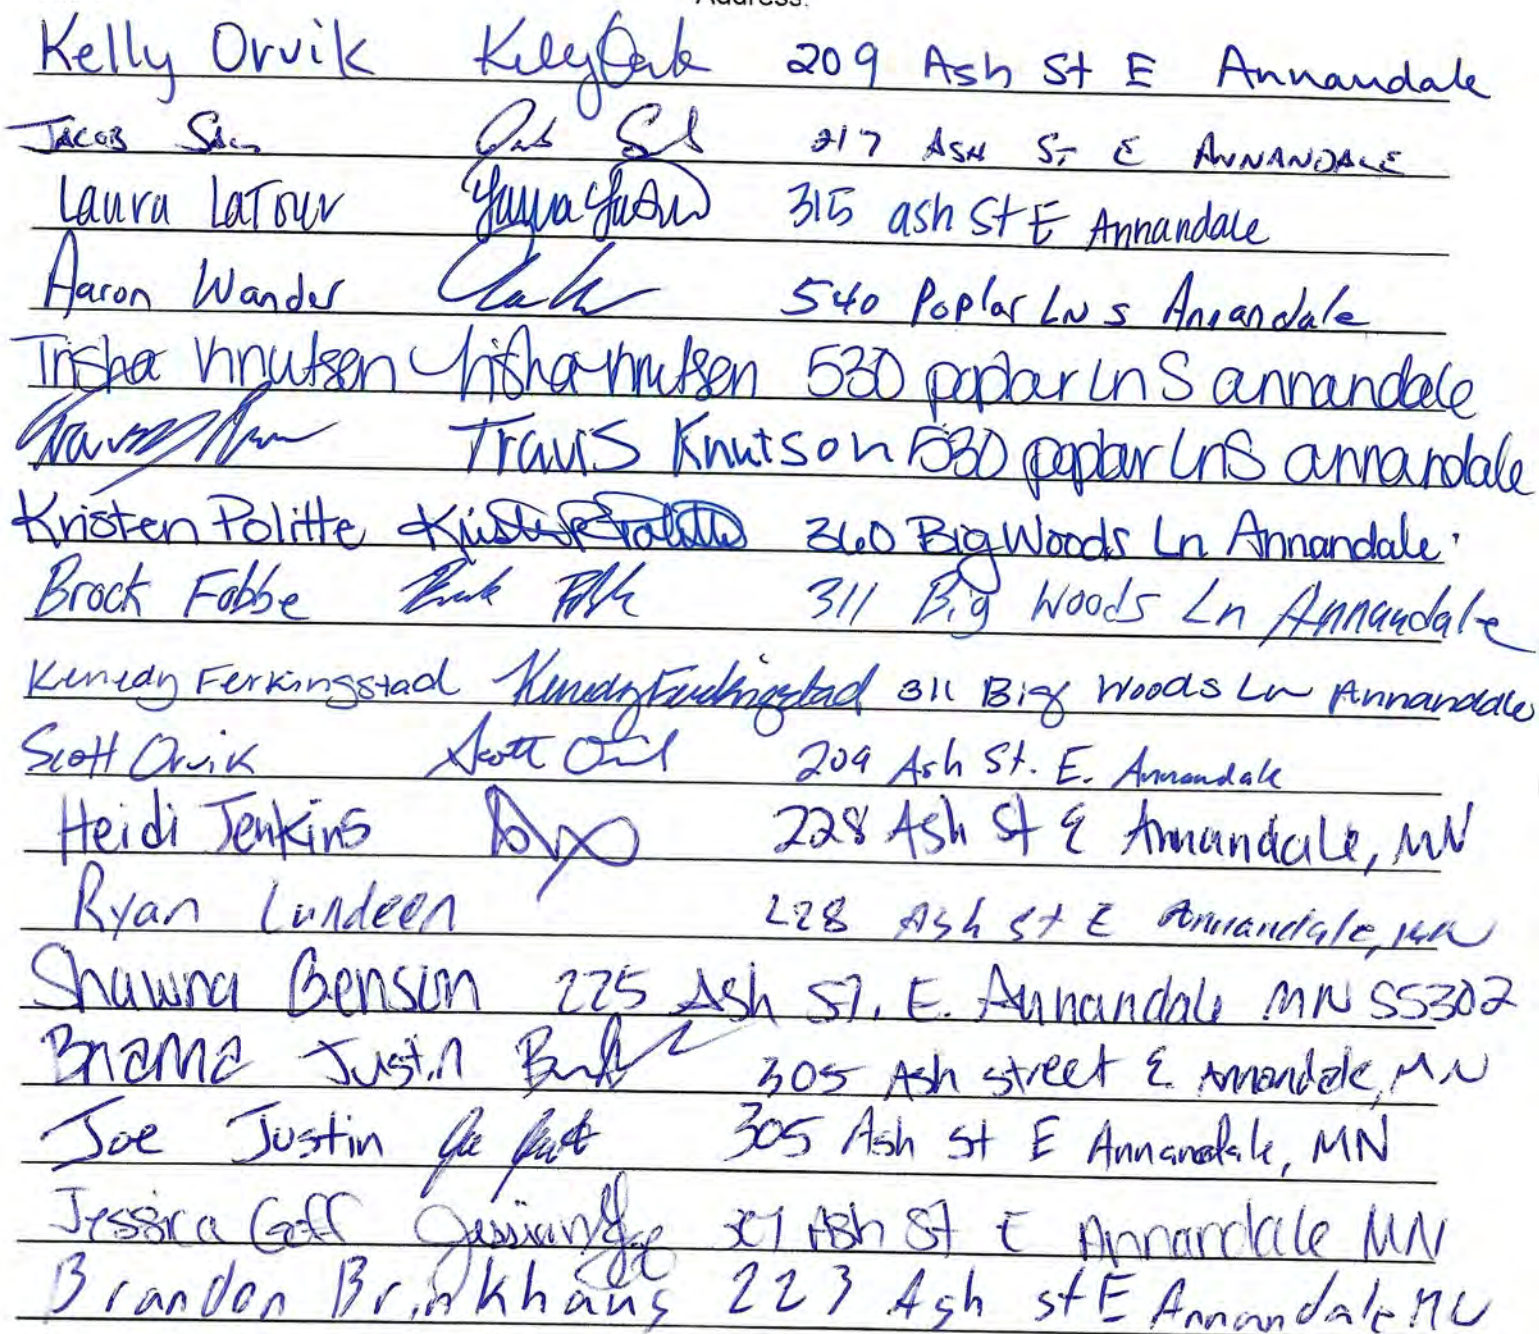 Address:
Kelly Orvik Kelly Orvik 209 Ash St E Annandale
JACOB 217 ASH ST E ANNANDALE
Laura LaTour Laura LaTour 315 ash St E Annandale
Aaron Wander 540 Poplar LN S Annandale
Trisha Knutsen Trisha Knutsen 530 poplar Ln S annandale
Travis Knutson 530 poplar Ln S annandale
Kristen Politte Kristen Politte 360 Big Woods Ln Annandale
Brock Fobbe 311 Big Woods Ln Annandale
Kenedy Ferkingstad Kenedy Ferkingstad 311 Big Woods Ln Annandale
Scott Orvik Scott Orvik 209 Ash St. E. Annandale
Heidi Jenkins 228 Ash St E Annandale, MN
Ryan Lundeen 228 Ash St E Annandale, MN
Shawna Benson 225 Ash St. E. Annandale MN 55302
Brianna Justin 305 Ash street E Annandale, MN
Joe Justin 305 Ash St E Annandale, MN
Jessica Goff Ash St E Annandale MN
Brandon Brinkhaus 223 Ash St E Annandale MN